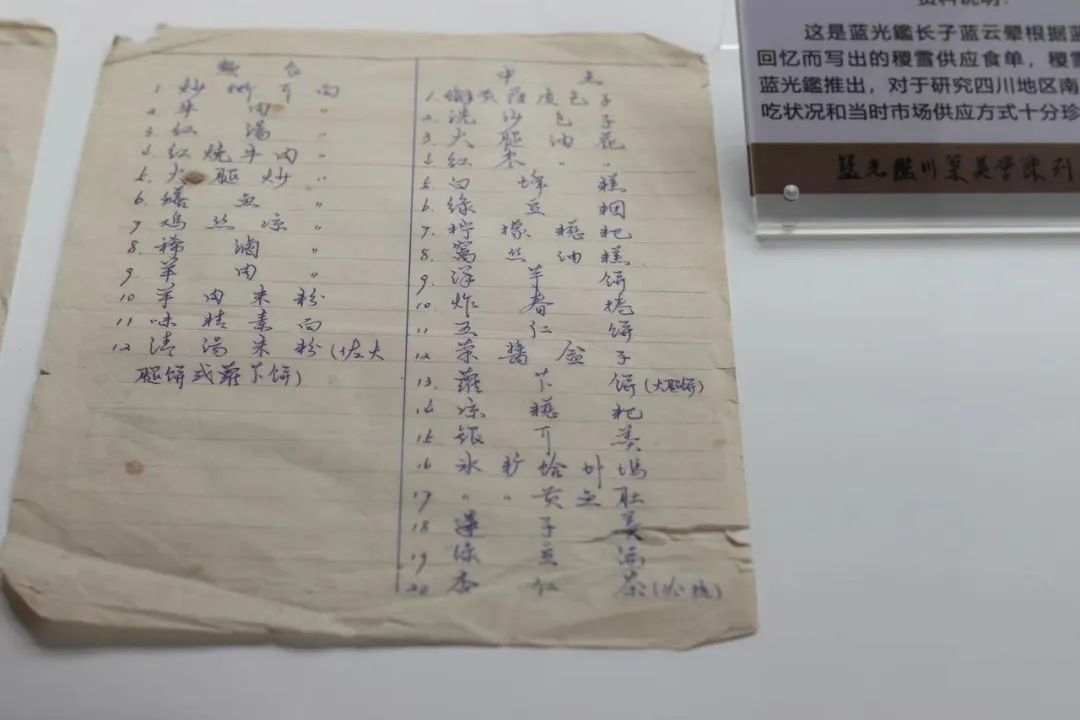 麵食
1 炒 面
2. 牛 肉 〃
3. 红 湯 〃
4. 红 烧 牛 肉 〃
5. 火 腿 炒 〃
6. 鱼 〃
7 鸡 丝 凉 〃
8. 稀 滷 〃
9. 羊 肉 〃
10 羊 肉 米 粉
11 味 精 素 面
12 清 湯 米 粉 (佐火
腿饼或蘿卜饼)
中 点
1. 皮 包 子
2. 洗 沙 包 子
3. 火 腿 油 花
4. 红 枣 〃 〃
5 白 蜂 糕
6. 绿 豆 糰
7. 柠 檬 糍 粑
8. 窝 丝 油 糕
9. 洋 芋 饼
10. 炸 春 捲
11 五 仁 饼
12 菜 醬 盒 子
13. 蘿 卜 饼 (火腿饼)
14. 凉 糍 粑
15 银 耳 羹
16 冰 蛤 什 蟆
17 〃 〃 黄 鱼 肚
18 蓮 子 羹
19 绿 豆
20 杏 仁 茶
资料说明：
这是蓝光鑑长子蓝云翚根据蓝
回忆而写出的稷雪供应食单，稷雪
蓝光鑑推出，对于研究四川地区南
吃状况和当时市场供应方式十分珍
蓝光鑑川菜美学陈列